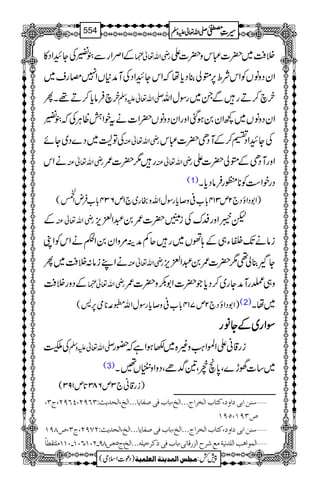 سیرتِ مصطفیٰ صلی اللہ تعالیٰ علیہ وسلم
554
خلافت میں حضرت عباس و حضرت علی رضی اللہ تعالیٰ عنہما کے اصرار سے بنو نضیر کی جائداد کا
ان دونوں کو اس شرط پر متولی بنا دیا تھا کہ اس جائداد کی آمدنیاں انہیں مصارف میں
خرچ کرتے رہیں گے جن میں رسول اللہ صلی اللہ تعالیٰ علیہ وسلم خرچ فرمایا کرتے تھے۔ پھر
ان دونوں میں کچھ ان بن ہوگئی اور ان دونوں حضرات نے یہ خواہش ظاہر کی کہ بنو نضیر
کی جائداد تقسیم کرکے آدھی حضرت عباس رضی اللہ تعالیٰ عنہ کی تولیت میں دے دی جائے
اور آدھی کے متولی حضرت علی رضی اللہ تعالیٰ عنہ رہیں مگر حضرت عمر رضی اللہ تعالیٰ عنہ نے اس
درخواست کو نامنظور فرما دیا۔ (1)
(ابوداؤد ج ۲ ص ۴۱۳ باب فی وصایا رسول اللہ و بخاری ج ۱ ص ۴۳۶ باب فرض الخمس)
لیکن خیبر اور فدک کی زمینیں حضرت عمر بن عبدالعزیز رضی اللہ تعالیٰ عنہ کے
زمانے تک خلفاء ہی کے ہاتھوں میں رہیں حاکم مدینہ مروان بن الحکم نے اس کو اپنی
جاگیر بنا لی تھی مگر حضرت عمر بن عبدالعزیز رضی اللہ تعالیٰ عنہ نے اپنے زمانہ خلافت میں پھر
وہی عملدرآمد جاری کر دیا جو حضرت ابو بکر و حضرت عمر رضی اللہ تعالیٰ عنہما کے دور خلافت
میں تھا۔ (2) (ابوداؤد ج ۲ ص ۴۱۷ باب فی وصایا رسول اللہ مطبوعہ نامی پریس)
سواری کے جانور
زرقانی علی المواہب وغیرہ میں لکھا ہوا ہے کہ حضور صلی اللہ تعالیٰ علیہ وسلم کی ملکیت
میں سات گھوڑے، پانچ خچر، تین گدھے، دو اونٹنیاں تھیں۔ (3)
(زرقانی ج ۳ ص ۳۸۶ تا ص ۳۹۱)
سنن ابی داود، کتاب الخراج...الخ، باب فی صفایا...الخ، الحدیث: ۲۹۶۳، ۲۹۶۴، ج۳،
ص۱۹۳، ۱۹۵
سنن ابی داود، کتاب الخراج...الخ، باب فی صفایا...الخ، الحدیث: ۲۹۷۲، ج۳، ص۱۹۸
المواهب اللدنیة مع شرح الزرقانی، باب فی ذکر خیله...الخ، ج۵، ص۹۸
پیش کش: مجلس المدینة العلمیة (دعوتِ اسلامی)